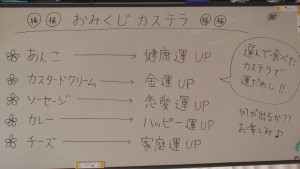 おみくじカステラ
あんこ → 健康運UP
カスタードクリーム → 金運UP
ソーセージ → 恋愛運UP
カレー → ハッピー運UP
チーズ → 家庭運UP
選んで食べた
カステラで
運だめし!!
何が出るか??
お楽しみ♪